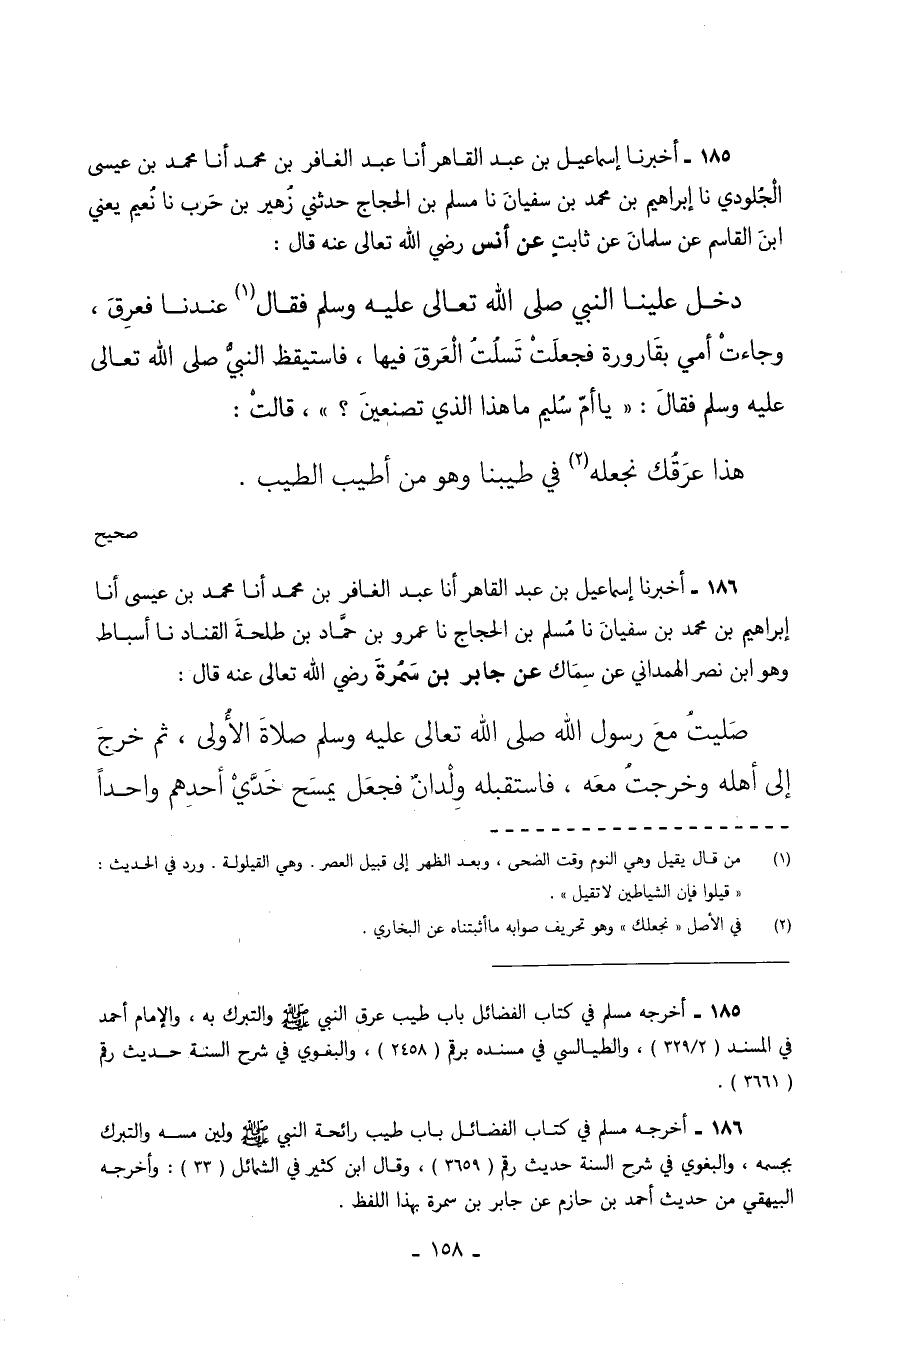 ١٨٥ ـ أخبرنا إسماعيل بن عبد القاهر أنا عبد الغافر بن محمد أنا محمد بن عيسى
الْجُلودي نا إبراهيم بن محمد بن سفيانَ نا مسلم بن الحجاج حدثني زُهير بن حَرب نا نُعيم يعني
ابنَ القاسم عن سلمانَ عن ثابتٍ عن أنس رضي الله تعالى عنه قال :
دخل علينا النبي صلى الله تعالى عليه وسلم فقال(١) عندنا فعرِقَ ،
وجاءتْ أمي بقَارورة فجعلَتْ تَسلُتُ الْعَرقَ فيها ، فاستيقظ النبيُّ صلى الله تعالى
عليه وسلم فقالَ : « ياأمّ سُليم ماهذا الذي تصنعينَ ؟ » ، قالتْ :
هذا عرَقُك نجعله(٢) في طيبنا وهو من أطيب الطيب .
صحيح
١٨٦ ـ أخبرنا إسماعيل بن عبد القاهر أنا عبد الغافر بن محمد أنا محمد بن عيسى أنا
إبراهيم بن محمد بن سفيانَ نا مُسلم بن الحجاج نا عمرو بن حمَّاد بن طلحةَ القناد نا أسباط
وهو ابن نصر الهمداني عن سِمَاك عن جابر بن سَمُرةَ رضي الله تعالى عنه قال :
صَليتُ معَ رسول الله صلى الله تعالى عليه وسلم صلاةَ الأُولى ، ثم خرجَ
إلى أهله وخرجتُ معَه ، فاستقبله وِلْدانٌ فجعَل يمسَح خَدَّيْ أحدِهم واحداً
(١) من قال يقيل وهي النوم وقت الضحى ، وبعد الظهر إلى قبيل العصر . وهي القيلولة . ورد في الحديث :
« قيلوا فإن الشياطين لاتقيل » .
(٢) في الأصل « نجعلك » وهو تحريف صوابه ماأثبتناه عن البخاري .
١٨٥ ـ أخرجه مسلم في كتاب الفضائل باب طيب عرق النبي ﷺ والتبرك به ، والإمام أحمد
في المسند ( ٣٢٩/٢ ) ، والطيالسي في مسنده برقم ( ٢٤٥٨ ) ، والبغوي في شرح السنة حديث رقم
( ٣٦٦١ ) .
١٨٦ ـ أخرجه مسلم في كتاب الفضائل باب طيب رائحة النبي ﷺ ولين مسه والتبرك
بجسمه ، والبغوي في شرح السنة حديث رقم ( ٣٦٥٩ ) ، وقال ابن كثير في الشمائل ( ٣٣ ) : وأخرجه
البيهقي من حديث أحمد بن حازم عن جابر بن سمرة بهذا اللفظ .
ـ ١٥٨ ـ